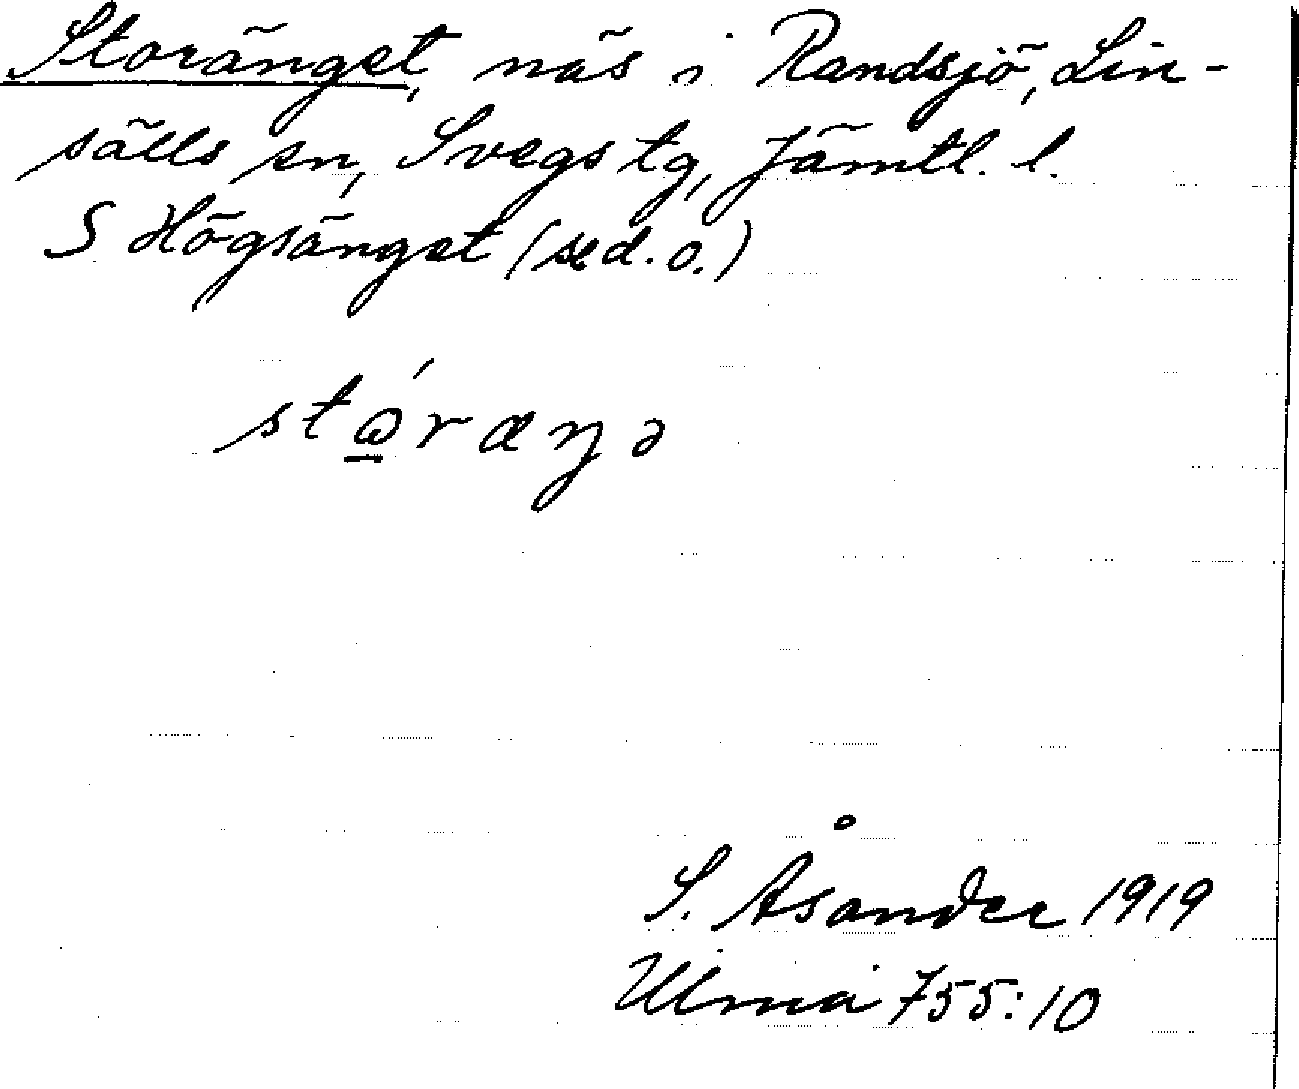 Storänget, näs i Randsjö, Lin-
sälls sn, Svegs tg, Jämtl. l.
S Högsänget (se d. o.)
stώ̲ræŋə
S. Åsander 1919
Ulma 755:10